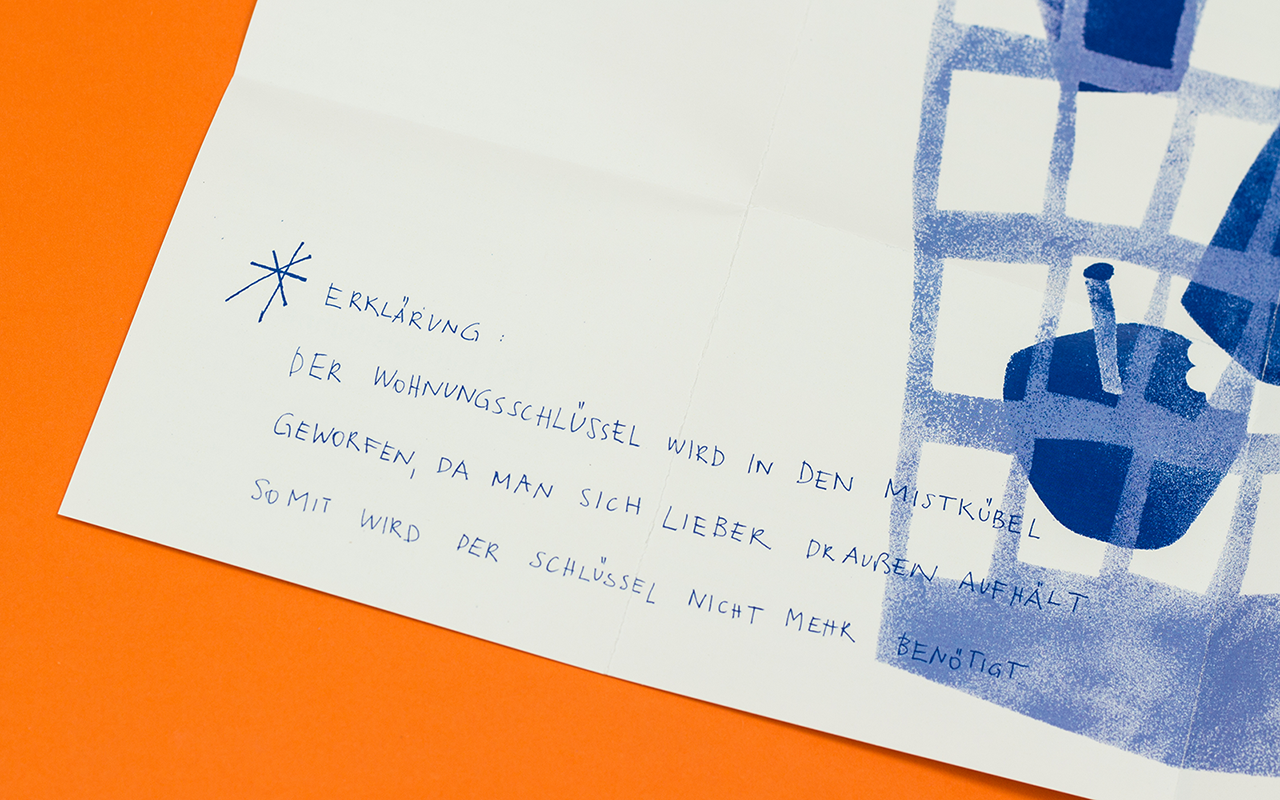 * ERKLÄRUNG :
DER WOHNUNGSSCHLÜSSEL WIRD IN DEN MISTKÜBEL
GEWORFEN, DA MAN SICH LIEBER DRAUßEN AUFHÄLT
SOMIT WIRD DER SCHLÜSSEL NICHT MEHR BENÖTIGT